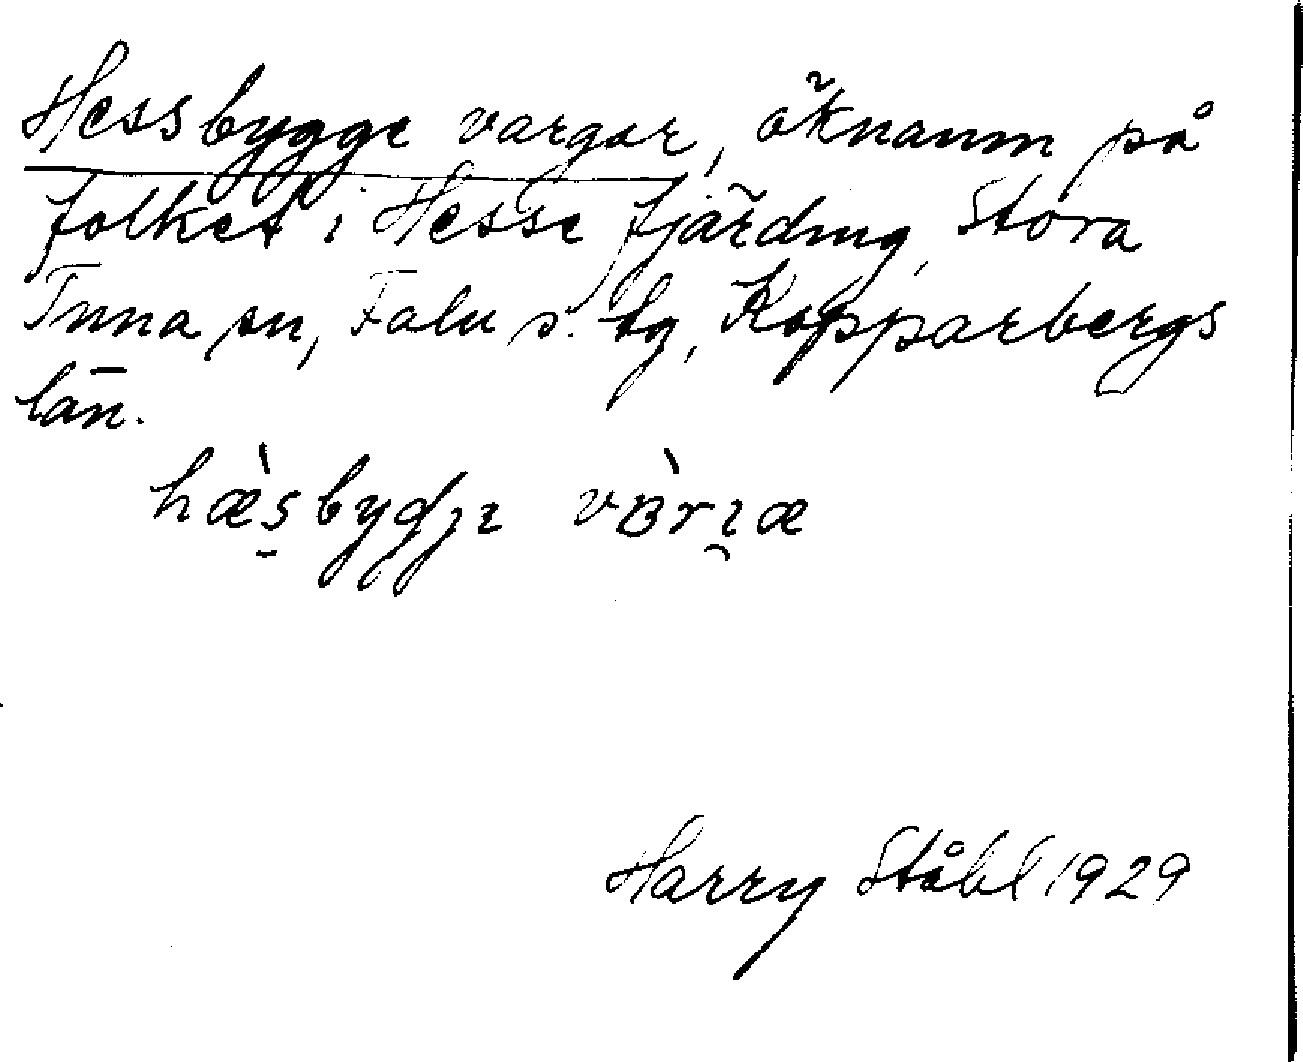 Hessbygge vargar, öknamn på
folket i Hesse fjärding, Stora
Tuna sn, Falu s. tg, Kopparbergs
län.
hæ̀s̱bydjɪ vʙ̀rɪ̯æ
Harry Ståhl 1929